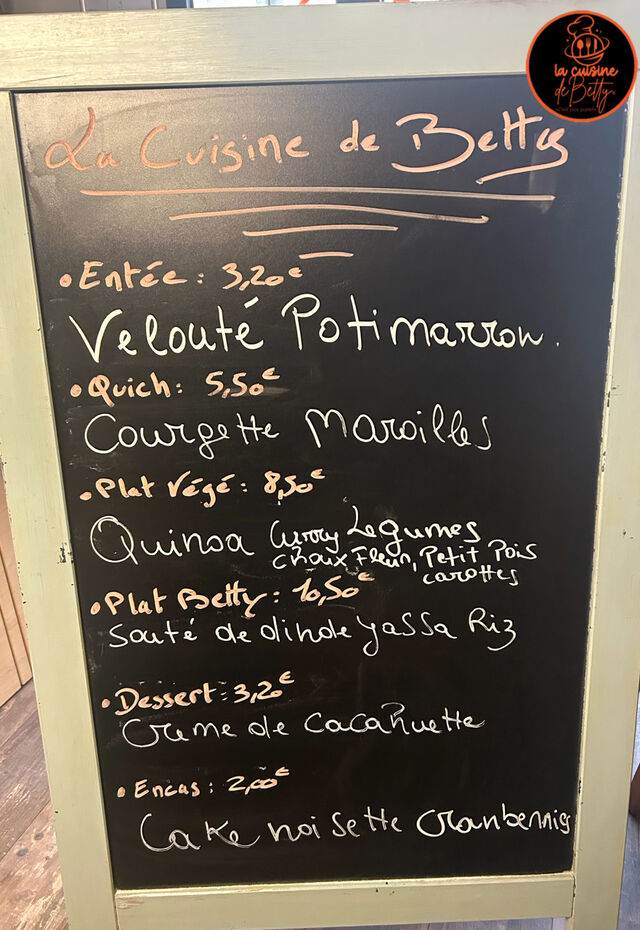 la cuisine
de Betty
La Cuisine de Betty
• Entée : 3,20€
Velouté Potimarron.
• Quich : 5,50€
Courgette Maroilles
• Plat Végé : 8,50€
Quinoa Curry Legumes
choux Fleur, Petit Pois
carottes
• Plat Betty : 10,50€
Sauté de dinde yassa Riz
• Dessert : 3,20€
Creme de cacahuette
• Encas : 2,00€
Cake noisette cranberries